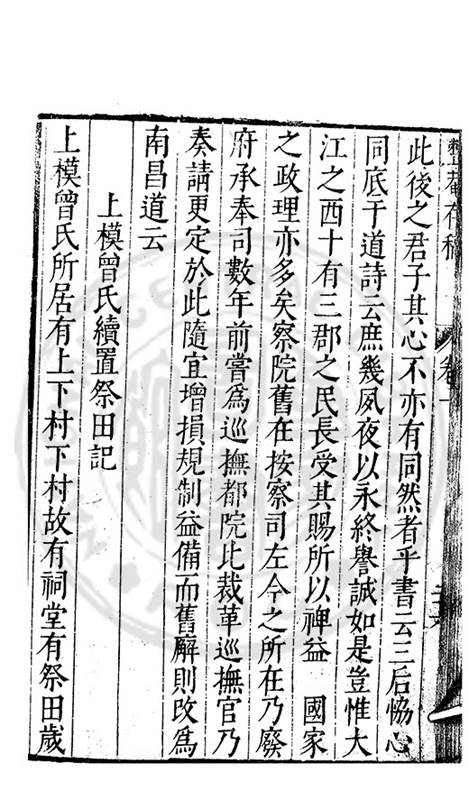 整菴存稿 卷一
此後之君子其心不亦有同然者乎書云三后恊心
同底于道詩云庶幾夙夜以永終譽誠如是豈惟大
江之西十有三郡之民長受其賜所以裨益 國家
之政理亦多矣察院舊在按察司左今之所在乃廢
府承奉司數年前嘗爲巡撫都院比裁革巡撫官乃
奏請更定於此隨宜增損規制益備而舊廨則改爲
南昌道云
上模曾氏續置祭田記
上模曾氏所居有上下村下村故有祠堂有祭田歲